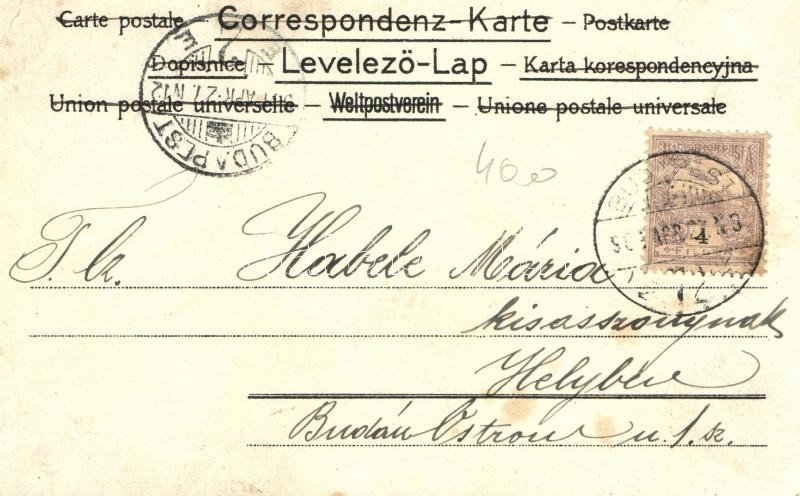 Carte postale – Correspondenz-Karte – Postkarte
Dopisnice – Levelező-Lap – Karta korespondencyjna
Union postale universelle – Weltpostverein – Unione postale universale
BUDAPEST
400
BUDAPEST
4
T. k. Habele Mária
kisasszonynak
Helyben
Budán Ostrom u. 1. sz.